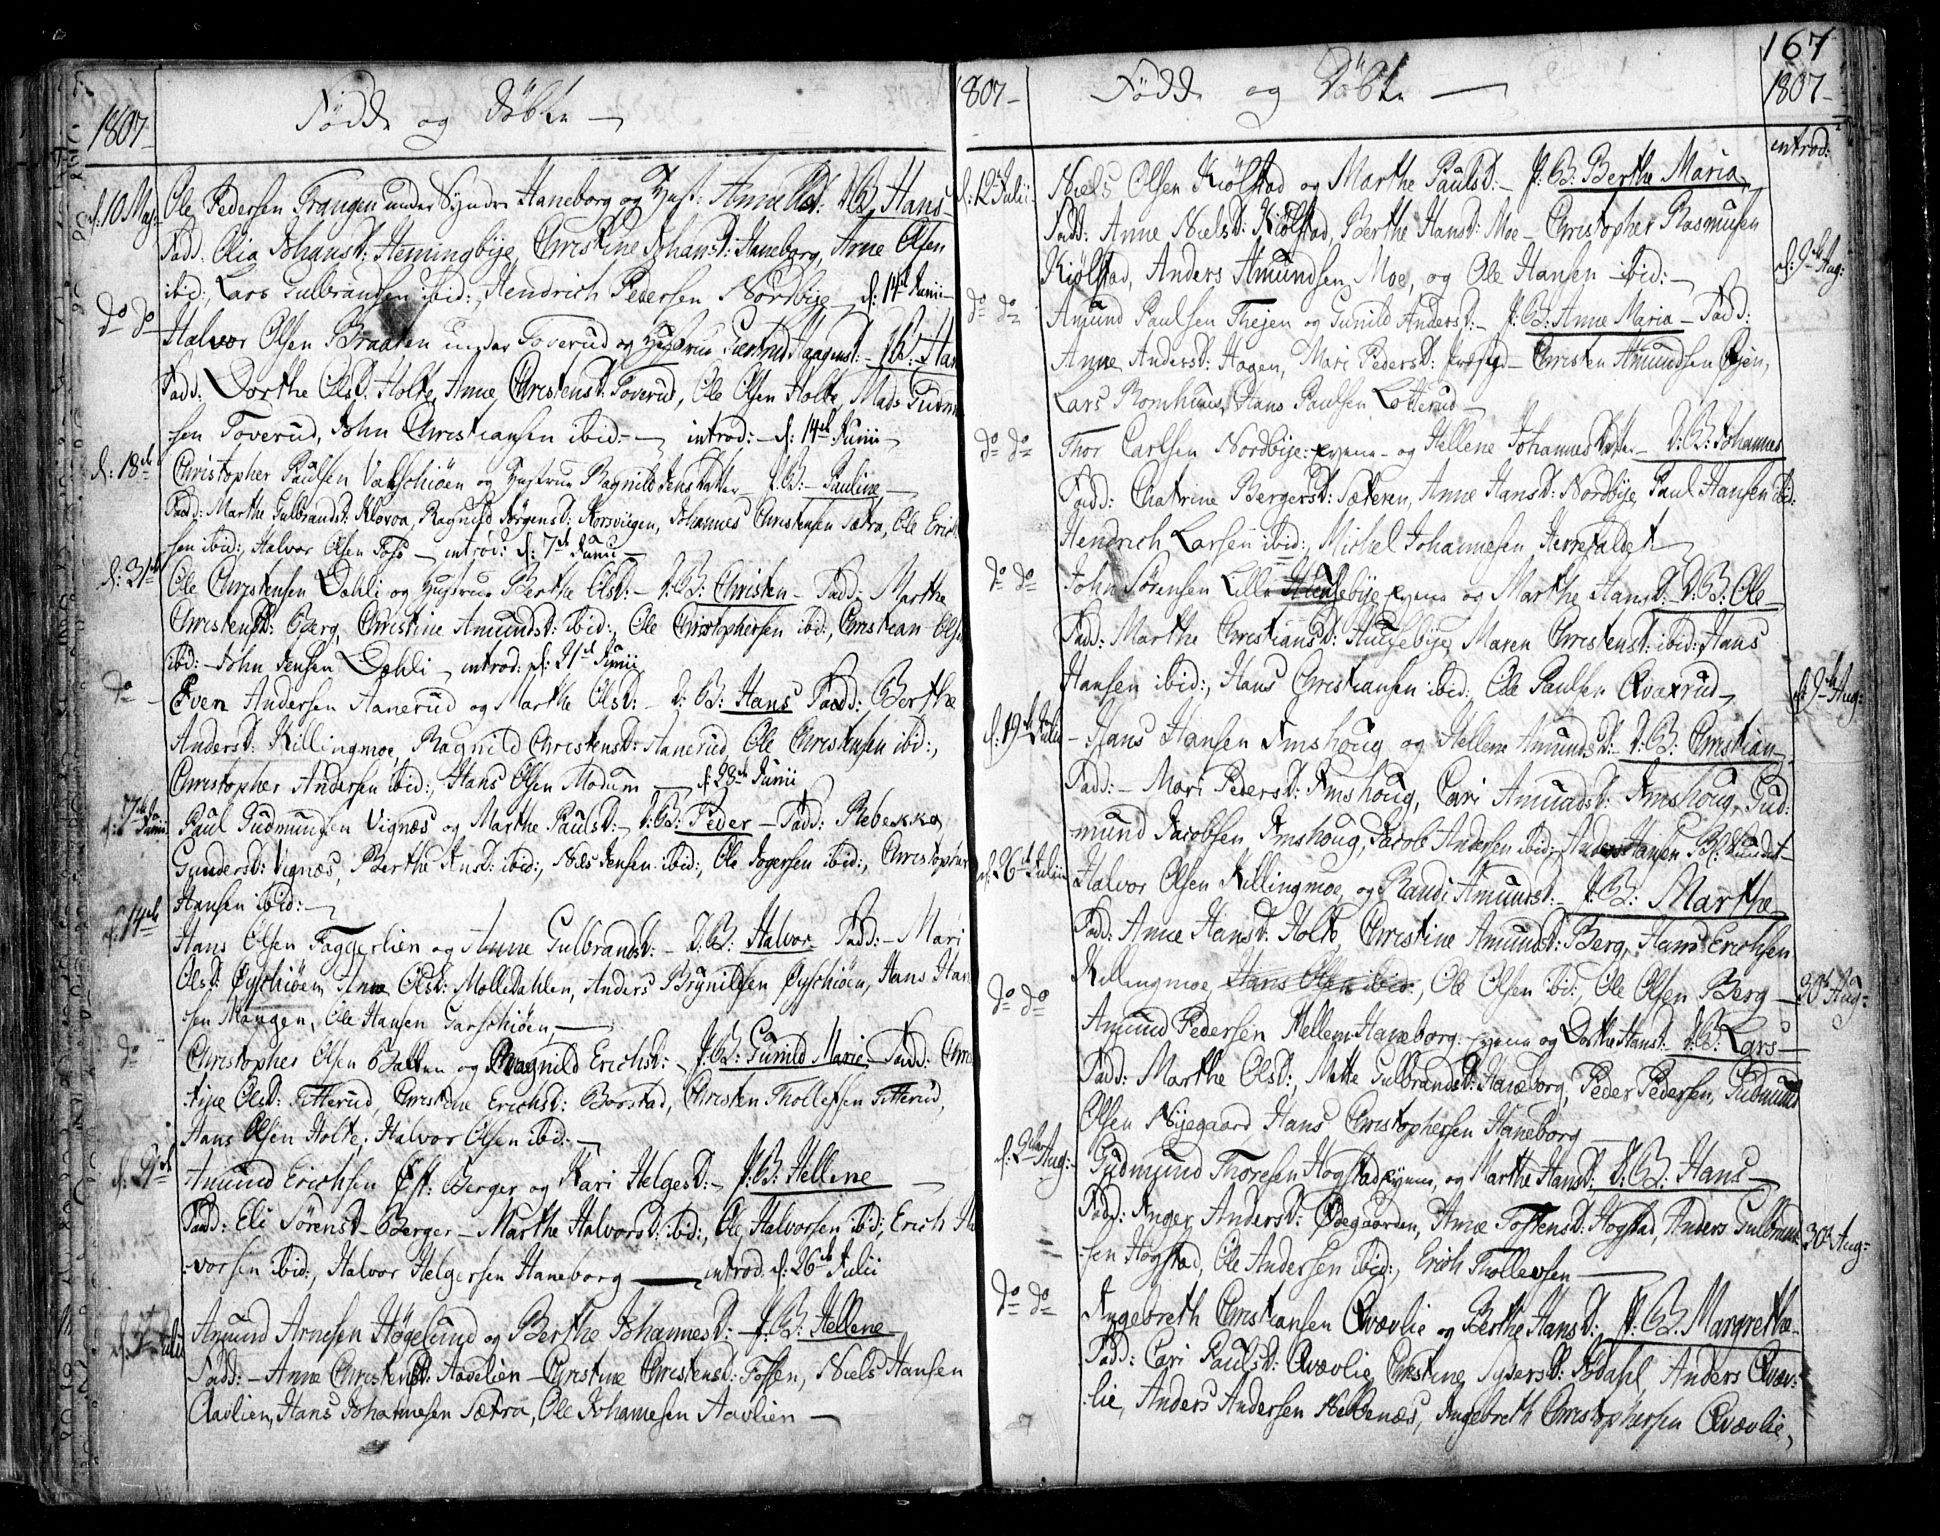 1807-
Födde og Döbte -
d: 10 Maj: Ole Pedersen Trangen under Syndre Haneborg og Hust: Anne D: B: Hans-
Fadd: Olia Johansd: Hemingbye, Christine Johansd: Haneborg, Arne Olsen
ibid:, Lars Gulbrandsen ibid:, Hendrich Pedersen Nordbye - d: 14de Junii
do do Halvor Olsen Braaten under Toverud og Hustrue Haagensd: - D: B: Han
Fadd: Dorthe Olsd: Holte, Anne Christensd: Toverud, Ole Olsen Holte, Mads
sen Toverud, John Christiansen ibid: - introd: - d: 14de Junii -
d: 18de Christopher Paulsen og Hustrue Ragnild Jensdatter - P: B: Pauline -
Fadd: Marthe Gulbrandsd: Klovoa, Ragnild Jörgensd: Korsviigen, Johannes Christensen Sætra, Ole Erich
sen ibid:, Halvor Olsen Foss - introd: d: 7de Junii -
d: 31te Ole Christensen Dæhli og Hustrue Berthe Olsd: - D: B: Christen - Fadd: Marthe
Christensd: Berg, Christine Amundsd: ibid:, Ole Christophersen ibid:, Christian Olsen
ibid: - John Jensen Dæhli - introd: d: 21de Junii
do - Even Andersen Aanerud og Marthe Olsd: - D: B: Hans Fadd: Berthe
Andersd: Killingmoe, Ragnild Christensd: Aanerud, Ole Christensen ibid:,
Christopher Andersen ibid:, Hans Olsen Modum - d: 28de Junii
d: 7de Junii Paul Gudmunsen Vignæs og Marthe Paulsd: - D: B: Peder - Fadd: Rebekka
Gundersd: Vignæs, Berthe ibid:, Jensen ibid:, Ole ibid:, Christopher
Hansen ibid: -
d: 14de Hans Olsen Faggerlien og Anne Gulbrandsd: - D: B: Halvor Fadd: - Mari
Olsd: Øyschiöen, Anne Olsd: Molledahlen, Anders Brynildsen Øyschiöen, Hans Han
sen Mangen, Ole Hansen Garschiöen -
do Christopher Olsen og Ragnild Erichsd: - P: B: Gunild Marie - Fadd: Chris
tine Olsd: Titterud, Christine Erichsd: Borstad, Christen Thollefsen Titterud,
Hans Olsen Holte, Halvor Olsen ibid: -
d: 21de Amund Erichsen Berger og Kari Helgesd: - P: B: Hellene -
Fadd: Eli Sörensd: Berger - Marthe Halvorsd: ibid:, Ole Halvorsen ibid:, Erich Hal
vorsen ibid:, Halvor Helgersen Haneborg - introd. d: 26de Julii
Julii Amund Arnesen Högelund og Berthe Johannesd: - P: B: Hellene
Fadd: - Anne Christensd: Aavelien - Christine Christensd: Fossen, Niels Hansen
Aavlien, Hans Johannesen Sætra, Ole Johannesen Aavlien -
167
1807- Födde og Döbte - 1807-
introd:
d: 12 Julii Niels Olsen Kiölstad og Marthe Paulsd: - P: B: Berthe Maria
Fadd: Anne Nielsd: Kiölstad, Berthe Hansd: Moe - Christopher Rasmusen
Kiölstad, Anders Amundsen Moe, og Ole Hansen ibid: - d: 9de Aug:
do do Amund Paulsen Thejen og Gunild Andersd: - P: B: Anne Maria - Fadd:
Anne Andersd: Hagen, Mari Pedersd: - Christen Amundsen
Lars Hans Paulsen Lotterud -
do do Thor Carlsen Nordbye: - og Hellene Johannesdatter - D: B: Johannes
Fadd: Chatrine Bergersd: Sæteren, Anne Hansd: Nordbye, Paul Hansen ibid:
Hendrich Larsen ibid:, Michel Johannesen Herrefaldet -
do do John Sörensen Lille Huusebye og Marthe Hansd: D: B: Ole
Fadd: Marthe Christiansd: Huusebye, Maren Christensd: ibid: Hans
Hansen ibid:, Hans Christiansen ibid:, Ole Paulsen - d: 9de Aug:
d: 19de Julii - Hans Hansen Amshoug og Hellene Amundsd: - D: B: Christian
Fadd: - Mari Pedersd: Amshoug, Cari Amundsd: Amshoug, Gud:
mund Jacobsen Amshoug, Jacob Andersen ibid:, Anders Hansen
d: 26de Julii Halvor Olsen Killingmoe, og Randi Amundsd: - P: B: Marthe
Fadd: Anne Hansd: Holte, Christine Amundsd: Berg, Hans Erichsen
Killingmoe, Hans Olsen ibid:, Ole Olsen ibid:, Ole Olsen Berg - 30te Aug:
do do Amund Pedersen Mellem Haneborg: og Dorthe Hansd: - D: B: Lars -
Fadd: Marthe Olsd:, Mette Gulbrandsd: Haneborg, Peder Pedersen, Gudmund
Olsen Nyegaard Hans Christophersen Haneborg -
d: 2den Aug: Gudmund Thoresen Hogstad og Marthe Hansd: D: B: Hans -
Fadd: Anger Andersd: Ødegaarden, Anne Hogstad, Anders Gulbrand
sen Hogstad, Ole Andersen ibid:, Erich Thollevsen - 30te Aug:
do do Ingebreth Christiansen Qvævlie og Berthe Hansd: P: B: Margrethe-
Fadd: Cari Paulsd: Qvævlie, Christine Anders Qvæv:
lie, Anders Andersen Ingebreth Christophersen Qvævlie,